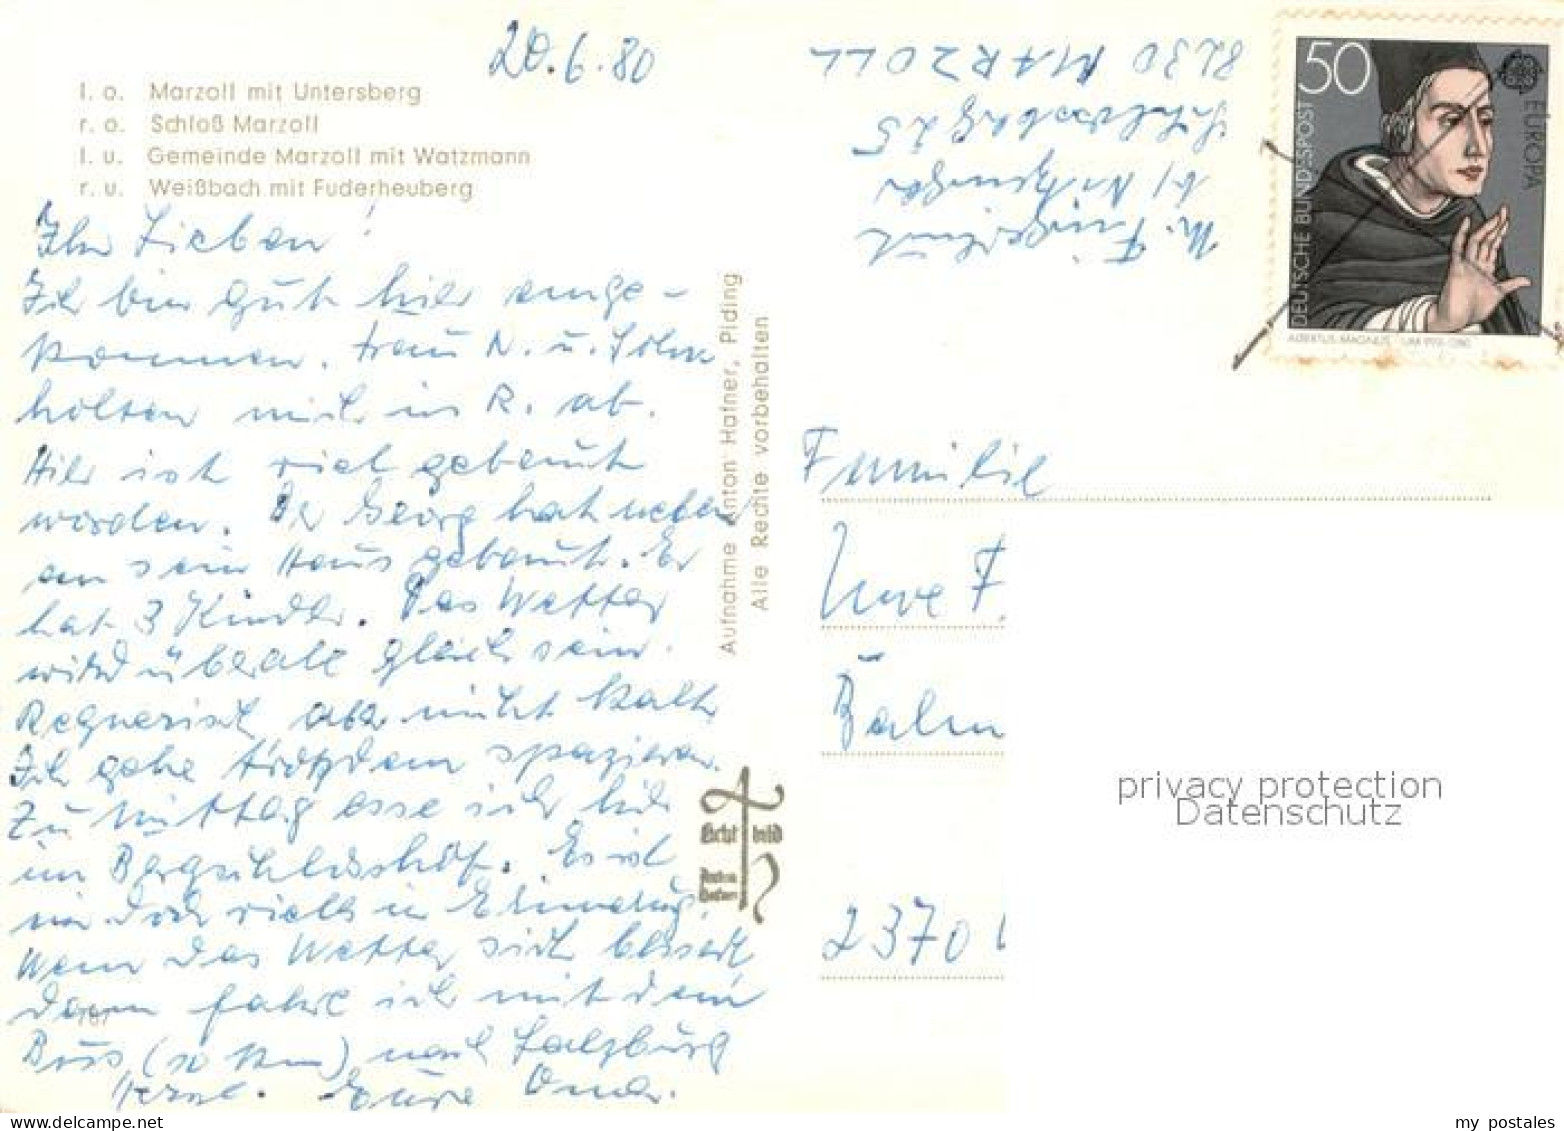 20.6.80
l. o. Marzoll mit Untersberg
r. o. Schloß Marzoll
l. u. Gemeinde Marzoll mit Watzmann
r. u. Weißbach mit Fuderheuberg
Ihr Lieben!
Ich bin gut hier ange-
kommen. Frau N. u. Sohn
holten mich in R. ab.
Hier ist viel gebaut
worden. Der Georg hat neben
an sein Haus gebaut. Er
hat 3 Kinder. Das Wetter
wird überall gleich sein.
Regnerisch aber nicht kalt
Ich gehe trotzdem spazieren.
Zu Mittag esse ich hier
im Bergschlösshof. Es ist
mir doch vieles in Erinnerung.
Wenn das Wetter sich bessert
dann fahre ich mit dem
Bus (10 km) nach Salzburg
Herzl. Eure Oma.
787
Aufnahme Anton Hafner, Piding
Alle Rechte vorbehalten
Licht bild
Anton
Hafner
8230 MARZOLL
25
b/
M.
50
EUROPA
DEUTSCHE BUNDESPOST
ALBERTUS MAGNUS
Familie
Uwe F.
2370
privacy protection
Datenschutz
my postales